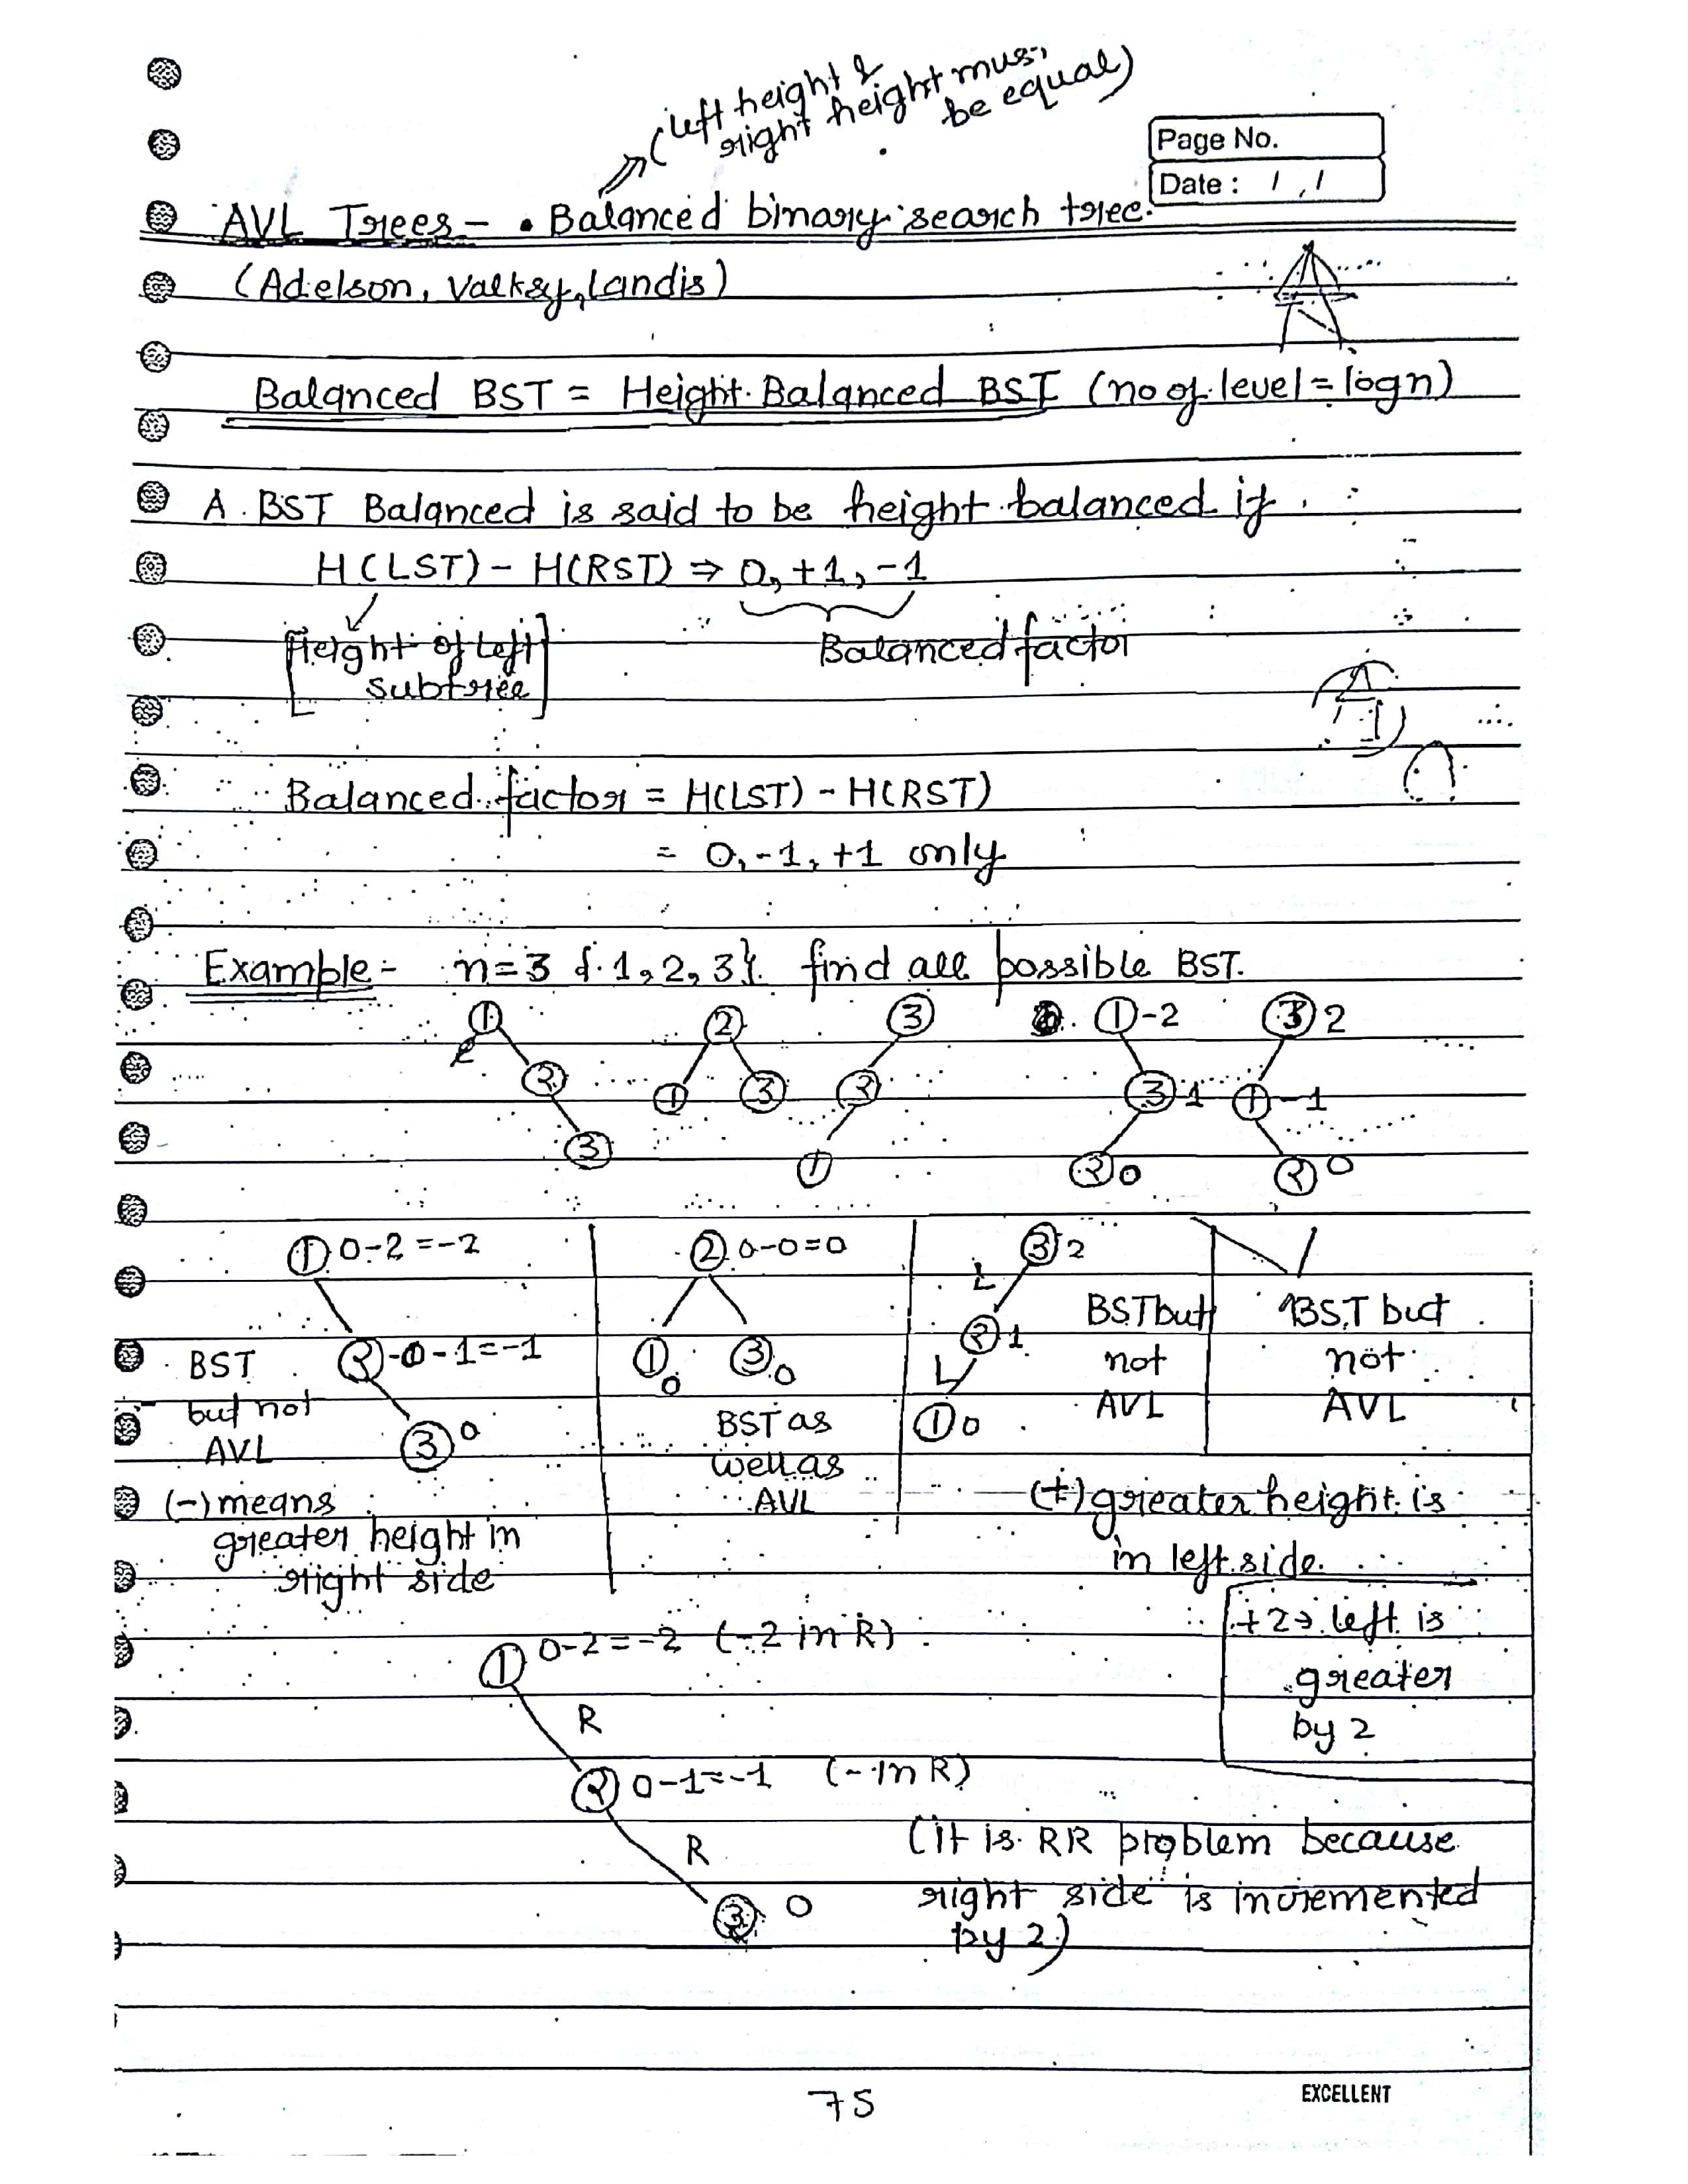 (left height &
right height must
be equal)
Page No.
Date : / /
AVL Trees - • Balanced binary search tree.
(Adelson, Valksy, landis)
Balanced BST = Height Balanced BST (no of level = logn)
A BST Balanced is said to be height balanced if
H(LST) - H(RST) ⇒ 0, +1, -1
[Height of Left
subtree]
Balanced factor
Balanced factor = H(LST) - H(RST)
= 0, -1, +1 only
Example - n=3 {1, 2, 3} find all possible BST.
1 2 3 1 -2 3 2
2 1 3 2 3 1 1 -1
3 1 2 0 2 0
1 0-2=-2 2 0-0=0 3 2
L
BST but BST but
BST 2 -0-1=-1 1 0 3 0 2 1 not not
L
but not 3 0 BST as 1 0 AVL AVL
AVL well as
AVL
(-) means
greater height in
right side
(+) greater height is
in left side.
+2 → left is
greater
by 2
1 0-2=-2 (-2 in R)
R
2 0-1=-1 (- in R)
R
3 0
(it is RR problem because
right side is incremented
by 2)
75
EXCELLENT